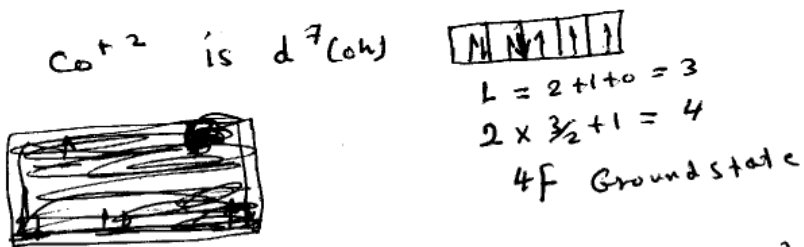 Co+2 is d7(oh)
L = 2+1+0 = 3
2 × 3/2 + 1 = 4
4F Ground state